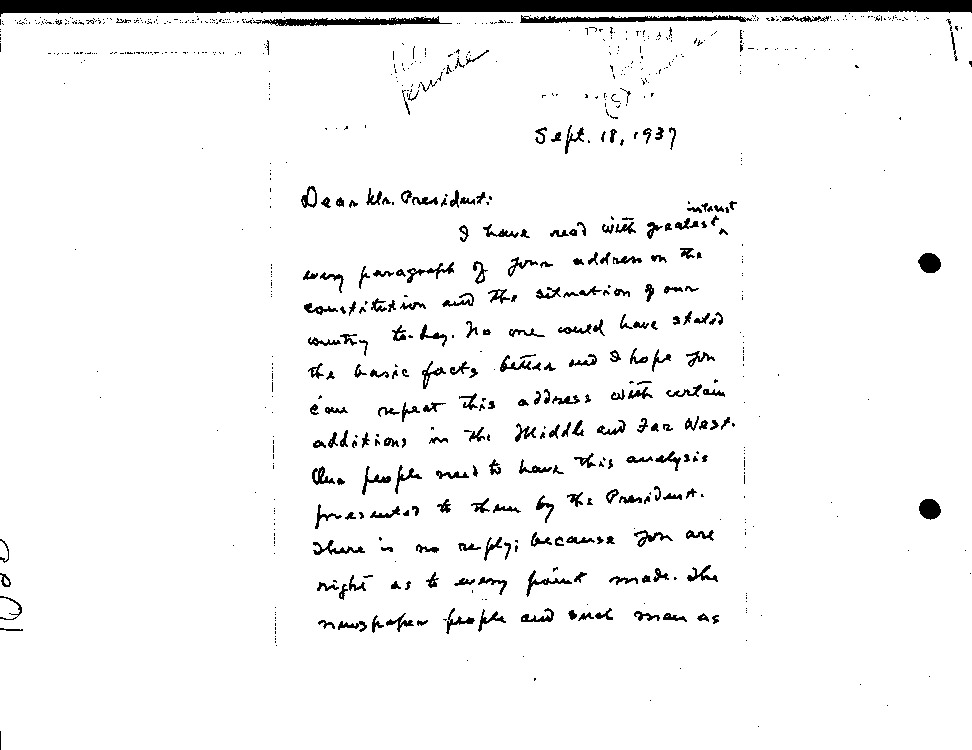 file
private
Sept. 18, 1937
Dear Mr. President:
interest
I have read with greatest ^
every paragraph of your address on the
constitution and the situation of our
country to-day. No one could have stated
the basic facts better and I hope you
can repeat this address with certain
additions in the Middle and Far West.
Our people need to have this analysis
presented to them by the President.
There is no reply; because you are
right as to every point made. The
newspaper people and such men as